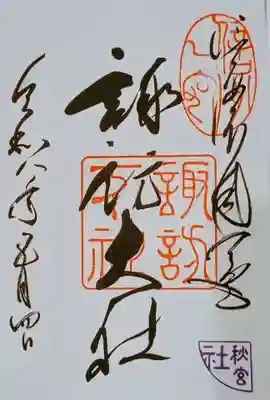 信濃國一之宮
諏訪大社
諏訪
大社
令和八年 五月四日
秋宮
社